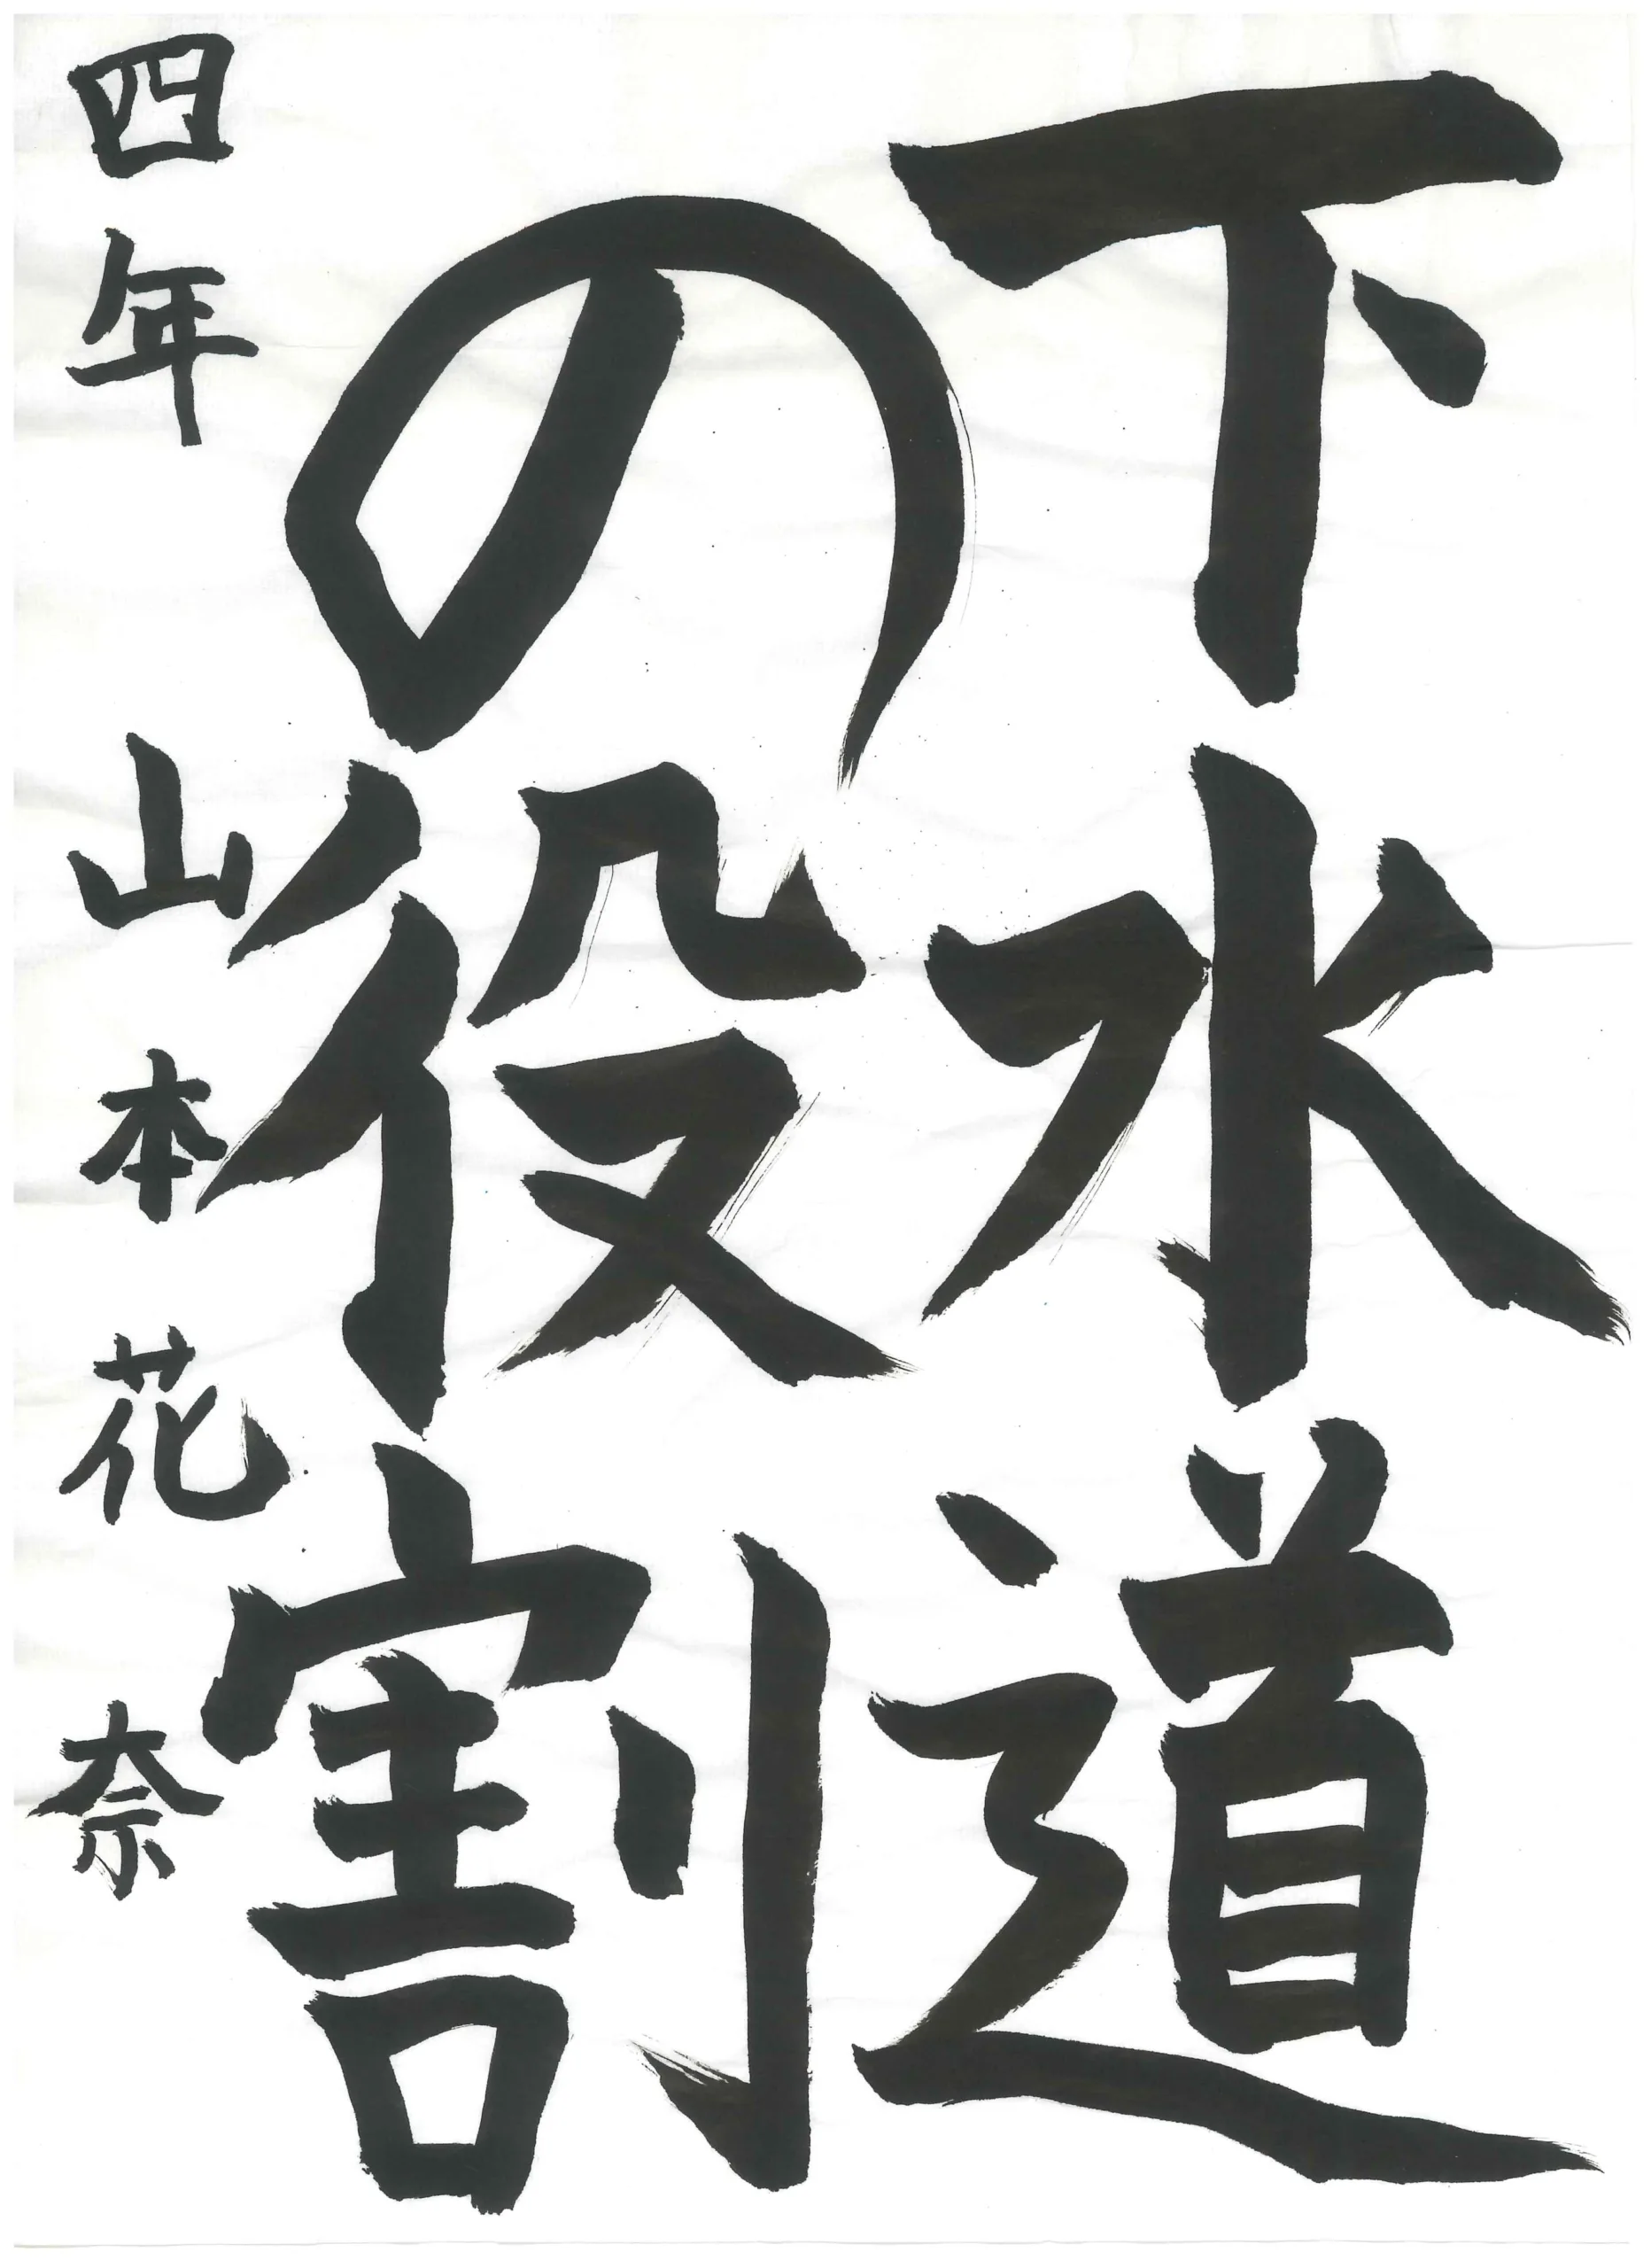 下水道
の役割
四年 山本花奈